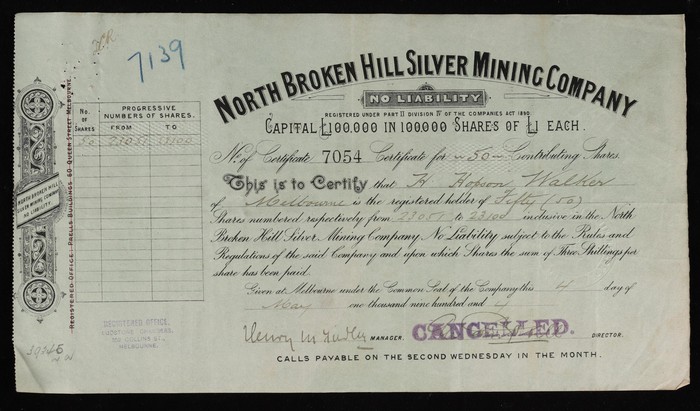 H.R.
7139
NORTH BROKEN HILL SILVER MINING COMPANY
NO LIABILITY
REGISTERED UNDER PART II DIVISION IV OF THE COMPANIES ACT 1890.
CAPITAL £100.000 IN 100000 SHARES OF £1 EACH.
No. of Certificate 7054 Certificate for 50 Contributing Shares.
This is to Certify that H Hopson Walker
of Melbourne is the registered holder of Fifty (50)
Shares numbered respectively from 23051 to 23100 inclusive in the North
Broken Hill Silver Mining Company No Liability subject to the Rules and
Regulations of the said Company and upon which Shares the sum of Three Shillings per
share has been paid.
Given at Melbourne under the Common Seal of the Company this 4 day of
May one thousand nine hundred and 4
MANAGER. CANCELLED. DIRECTOR.
CALLS PAYABLE ON THE SECOND WEDNESDAY IN THE MONTH.
No. OF SHARES
PROGRESSIVE NUMBERS OF SHARES.
FROM TO
50 23051 23100
NORTH BROKEN HILL
SILVER MINING COMPANY
NO LIABILITY.
REGISTERED OFFICE: PRELLS BUILDINGS 60 QUEEN STREET MELBOURNE.
REGISTERED OFFICE,
COLLINS ST.,
MELBOURNE.